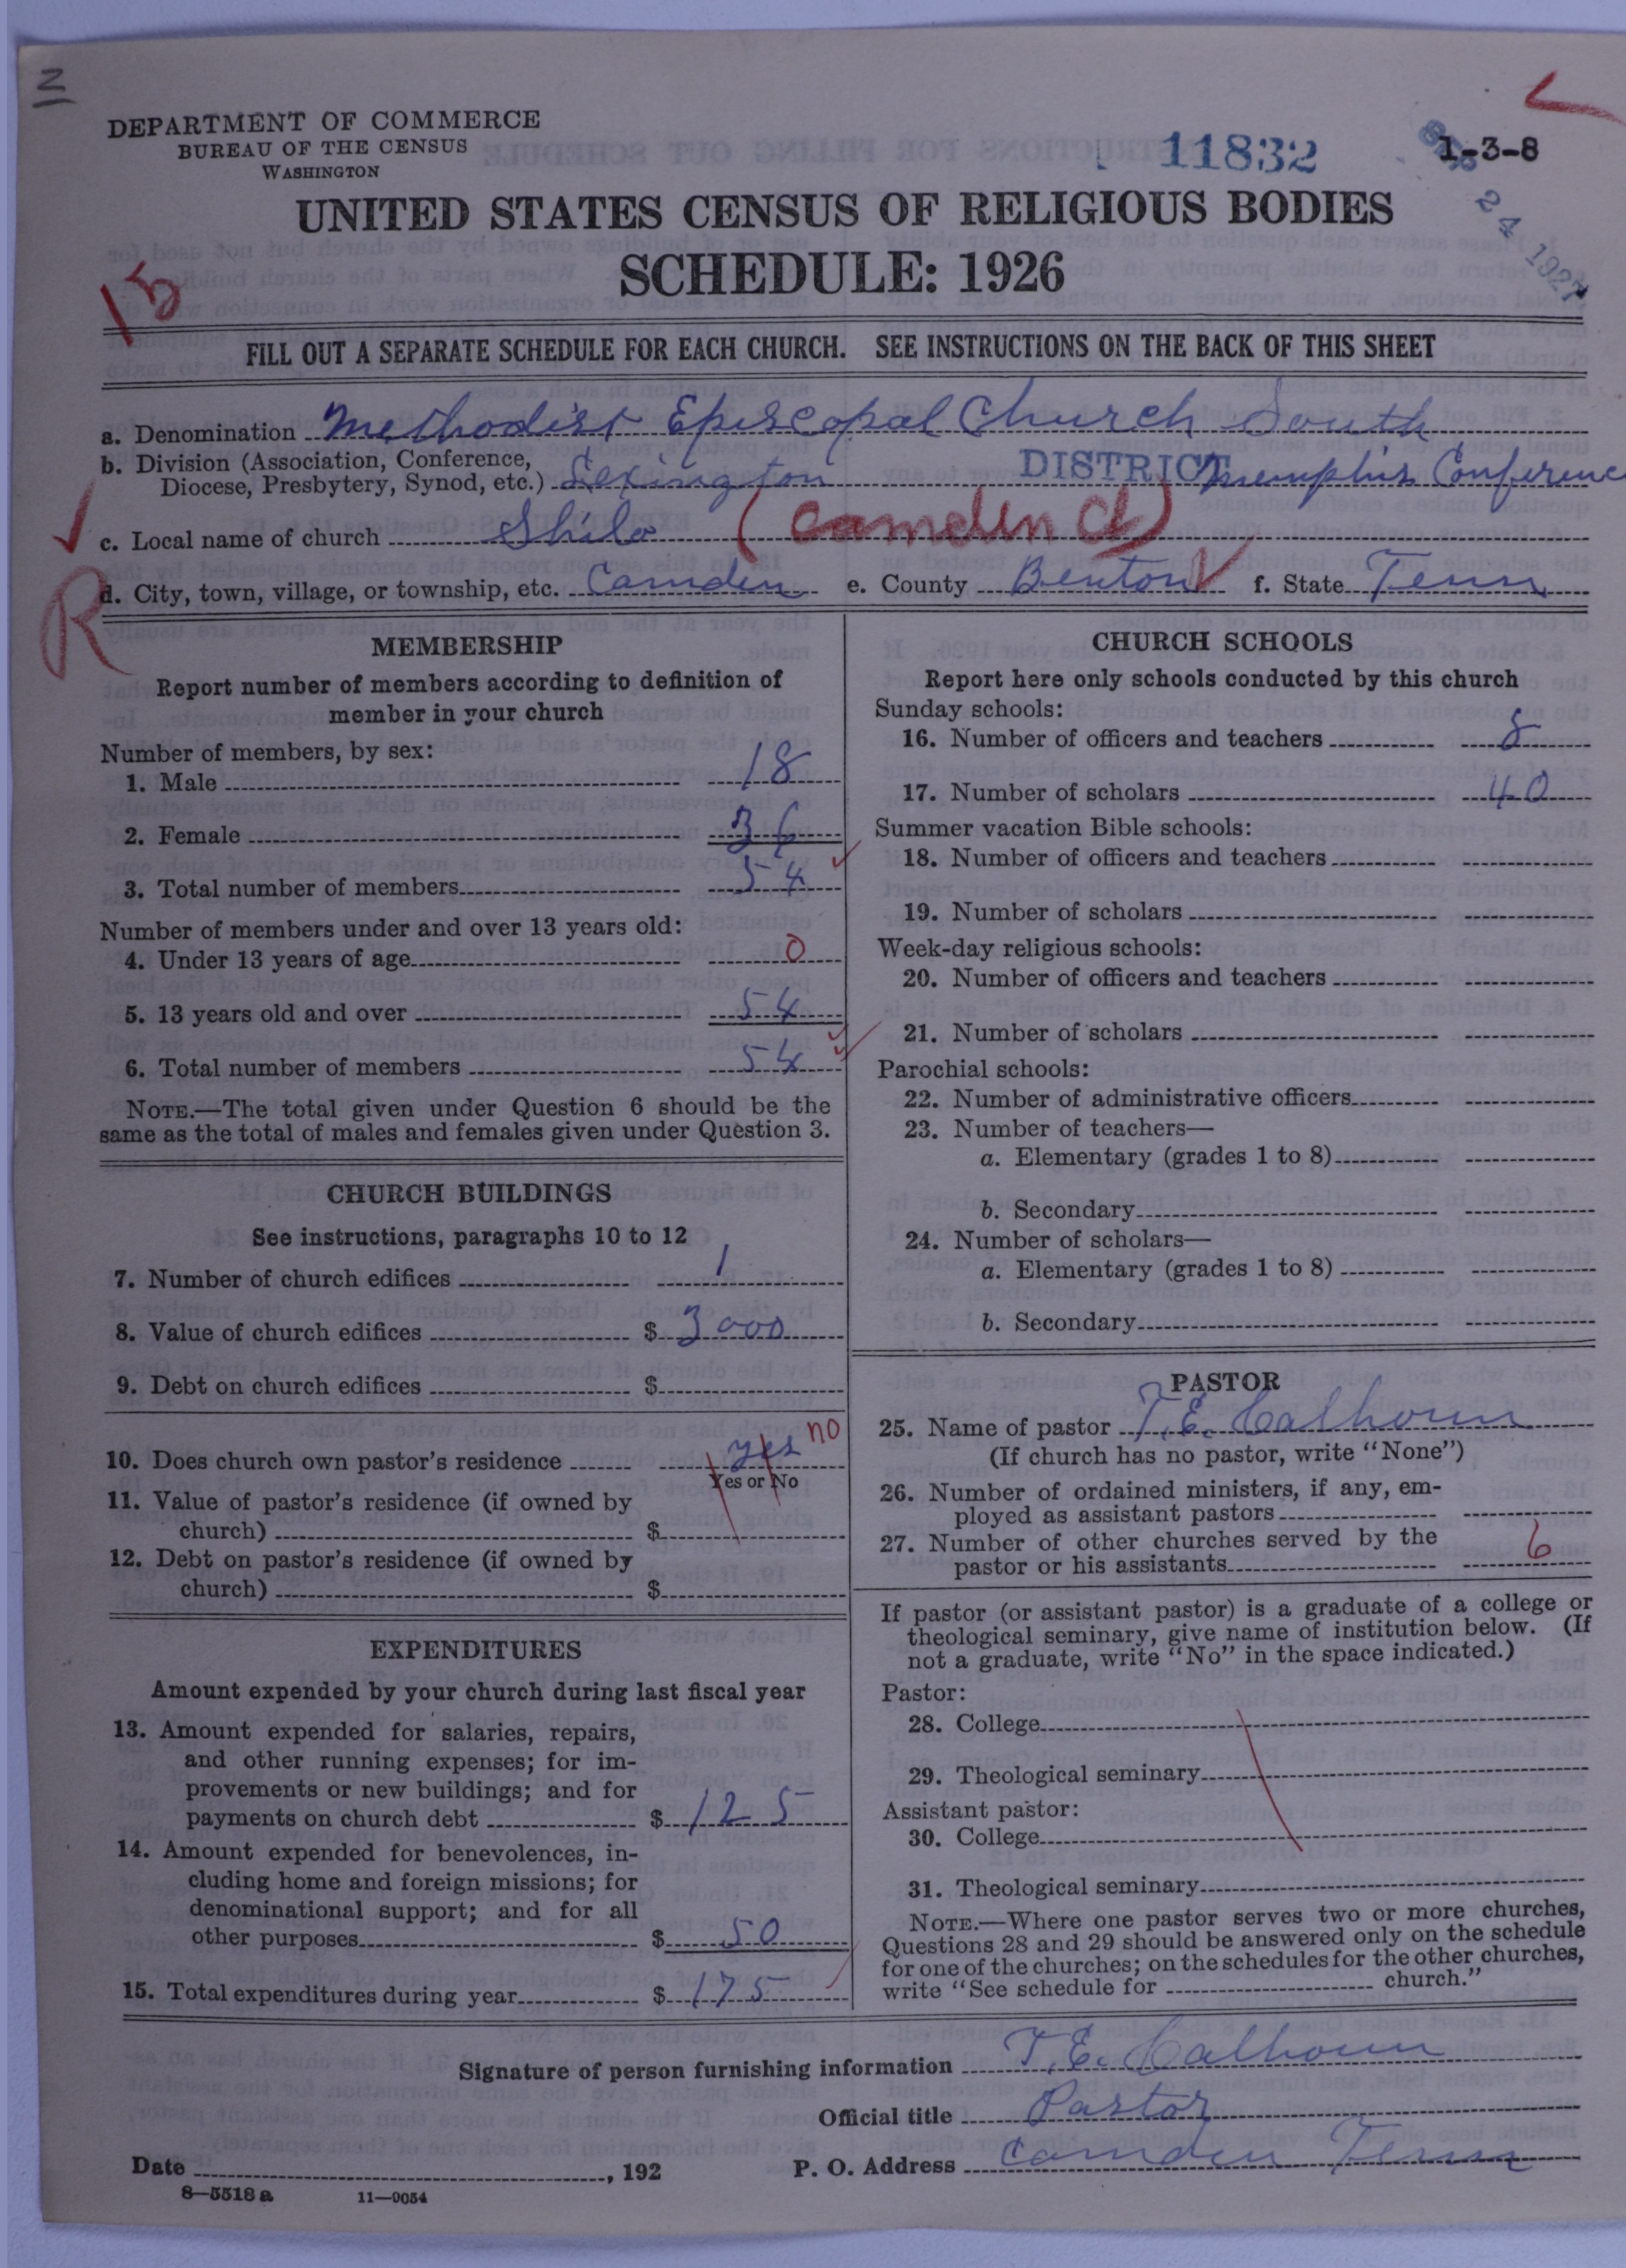 N
DEPARTMENT OF COMMERCE
BUREAU OF THE CENSUS
WASHINGTON
11832
1-3-8
24 1927
UNITED STATES CENSUS OF RELIGIOUS BODIES
SCHEDULE: 1926
15
FILL OUT A SEPARATE SCHEDULE FOR EACH CHURCH. SEE INSTRUCTIONS ON THE BACK OF THIS SHEET
a. Denomination Methodist Episcopal Church South
b. Division (Association, Conference,
Diocese, Presbytery, Synod, etc.) Lexington DISTRICT Memphis Conference
c. Local name of church Shilo (Camden Ct)
R
d. City, town, village, or township, etc. Camden e. County Benton f. State Tenn
MEMBERSHIP
Report number of members according to definition of
member in your church
Number of members, by sex:
1. Male 18
2. Female 36
3. Total number of members 54
Number of members under and over 13 years old:
4. Under 13 years of age 0
5. 13 years old and over 54
6. Total number of members 54
NOTE.—The total given under Question 6 should be the
same as the total of males and females given under Question 3.
CHURCH BUILDINGS
See instructions, paragraphs 10 to 12
7. Number of church edifices 1
8. Value of church edifices $ 3000
9. Debt on church edifices $
10. Does church own pastor's residence yes no
Yes or No
11. Value of pastor's residence (if owned by
church) $
12. Debt on pastor's residence (if owned by
church) $
EXPENDITURES
Amount expended by your church during last fiscal year
13. Amount expended for salaries, repairs,
and other running expenses; for im-
provements or new buildings; and for
payments on church debt $ 125
14. Amount expended for benevolences, in-
cluding home and foreign missions; for
denominational support; and for all
other purposes $ 50
15. Total expenditures during year $ 175
CHURCH SCHOOLS
Report here only schools conducted by this church
Sunday schools:
16. Number of officers and teachers 8
17. Number of scholars 40
Summer vacation Bible schools:
18. Number of officers and teachers
19. Number of scholars
Week-day religious schools:
20. Number of officers and teachers
21. Number of scholars
Parochial schools:
22. Number of administrative officers
23. Number of teachers—
a. Elementary (grades 1 to 8)
b. Secondary
24. Number of scholars—
a. Elementary (grades 1 to 8)
b. Secondary
PASTOR
25. Name of pastor T. E. Calhoun
(If church has no pastor, write "None")
26. Number of ordained ministers, if any, em-
ployed as assistant pastors
27. Number of other churches served by the
pastor or his assistants 6
If pastor (or assistant pastor) is a graduate of a college or
theological seminary, give name of institution below. (If
not a graduate, write "No" in the space indicated.)
Pastor:
28. College
29. Theological seminary
Assistant pastor:
30. College
31. Theological seminary
NOTE.—Where one pastor serves two or more churches,
Questions 28 and 29 should be answered only on the schedule
for one of the churches; on the schedules for the other churches,
write "See schedule for church."
Signature of person furnishing information T. E. Calhoun
Official title Pastor
Date , 192 P. O. Address Camden Tenn
8—5518 a 11—9054